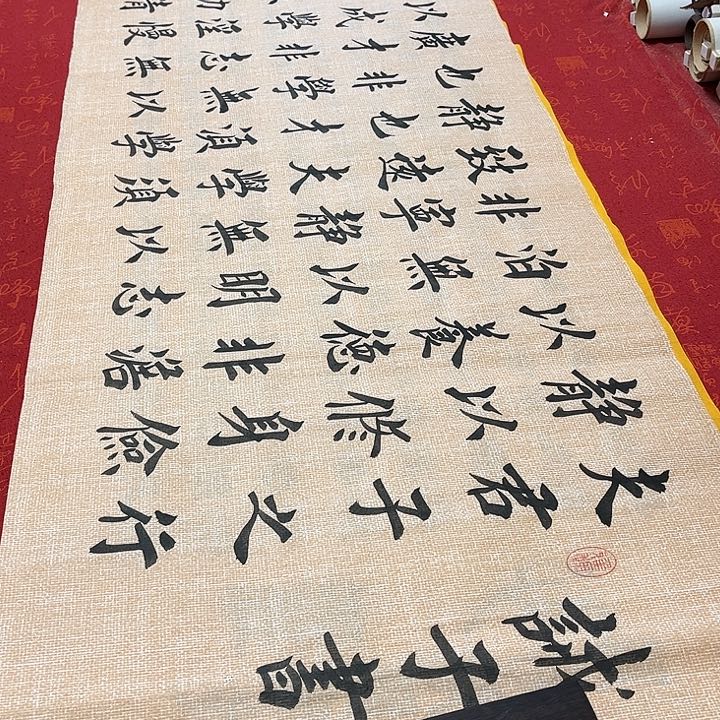 誡子書
夫君子之行
靜以修身儉
以養德非澹
泊無以明志
非寧靜無以
致遠夫學須
靜也才須學
也非學無以
廣才非志無
以成學淫慢